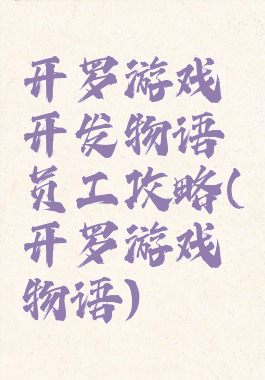 开罗游戏
开发物语
员工攻略(
开罗游戏
物语)